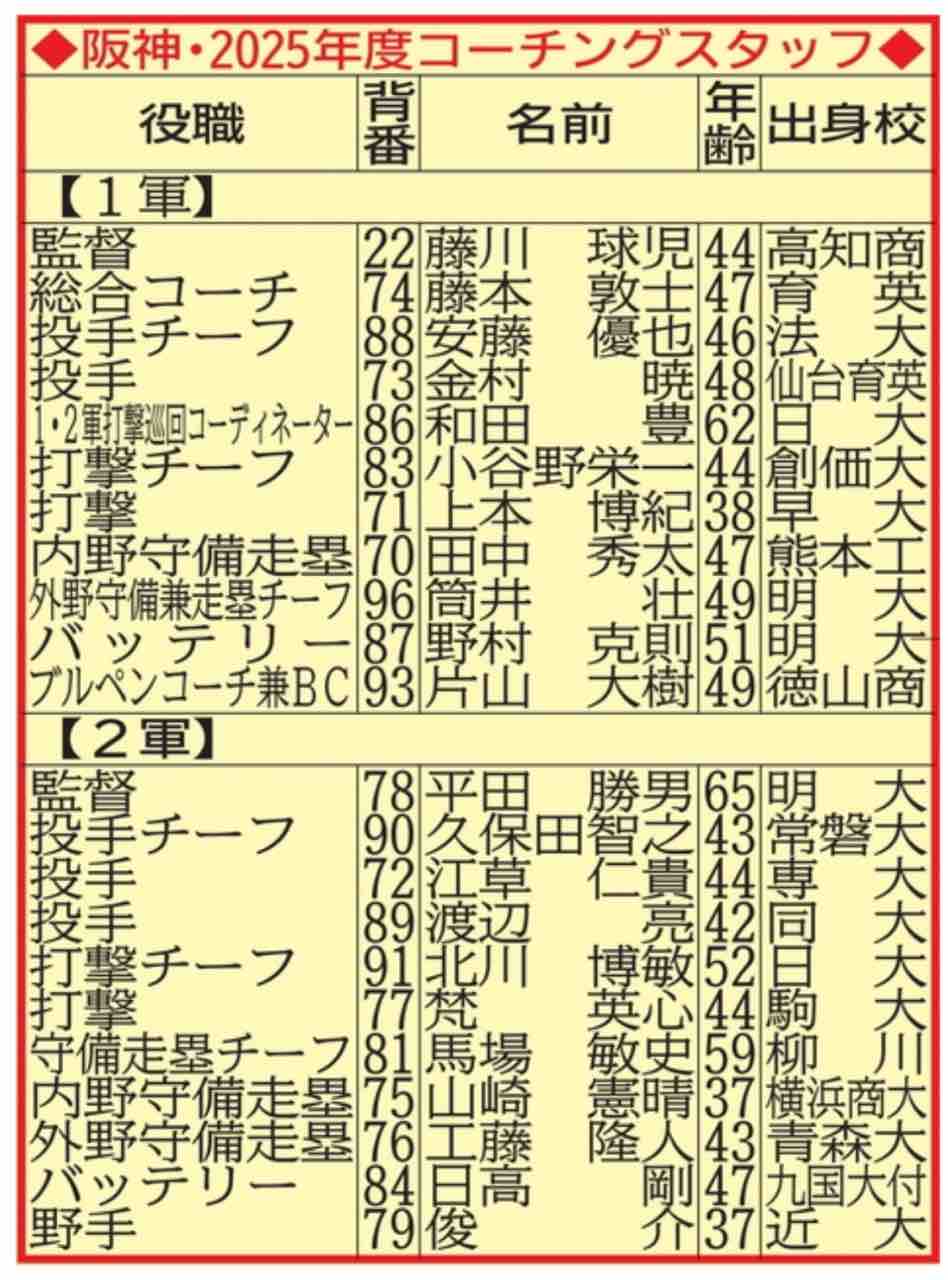 ◆阪神・2025年度コーチングスタッフ◆
役職 背番 名前 年齢 出身校
【1軍】
監督 22 藤川 球児 44 高知商
総合コーチ 74 藤本 敦士 47 育英
投手チーフ 88 安藤 優也 46 法大
投手 73 金村 暁 48 仙台育英
1・2軍打撃巡回コーディネーター 86 和田 豊 62 日大
打撃チーフ 83 小谷野栄一 44 創価大
打撃 71 上本 博紀 38 早大
内野守備走塁 70 田中 秀太 47 熊本工
外野守備兼走塁チーフ 96 筒井 壮 49 明大
バッテリー 87 野村 克則 51 明大
ブルペンコーチ兼BC 93 片山 大樹 49 徳山商
【2軍】
監督 78 平田 勝男 65 明大
投手チーフ 90 久保田智之 43 常磐大
投手 72 江草 仁貴 44 専大
投手 89 渡辺 亮 42 同大
打撃チーフ 91 北川 博敏 52 日大
打撃 77 梵 英心 44 駒大
守備走塁チーフ 81 馬場 敏史 59 柳川
内野守備走塁 75 山崎 憲晴 37 横浜商大
外野守備走塁 76 工藤 隆人 43 青森大
バッテリー 84 日高 剛 47 九国大付
野手 79 俊介 37 近大